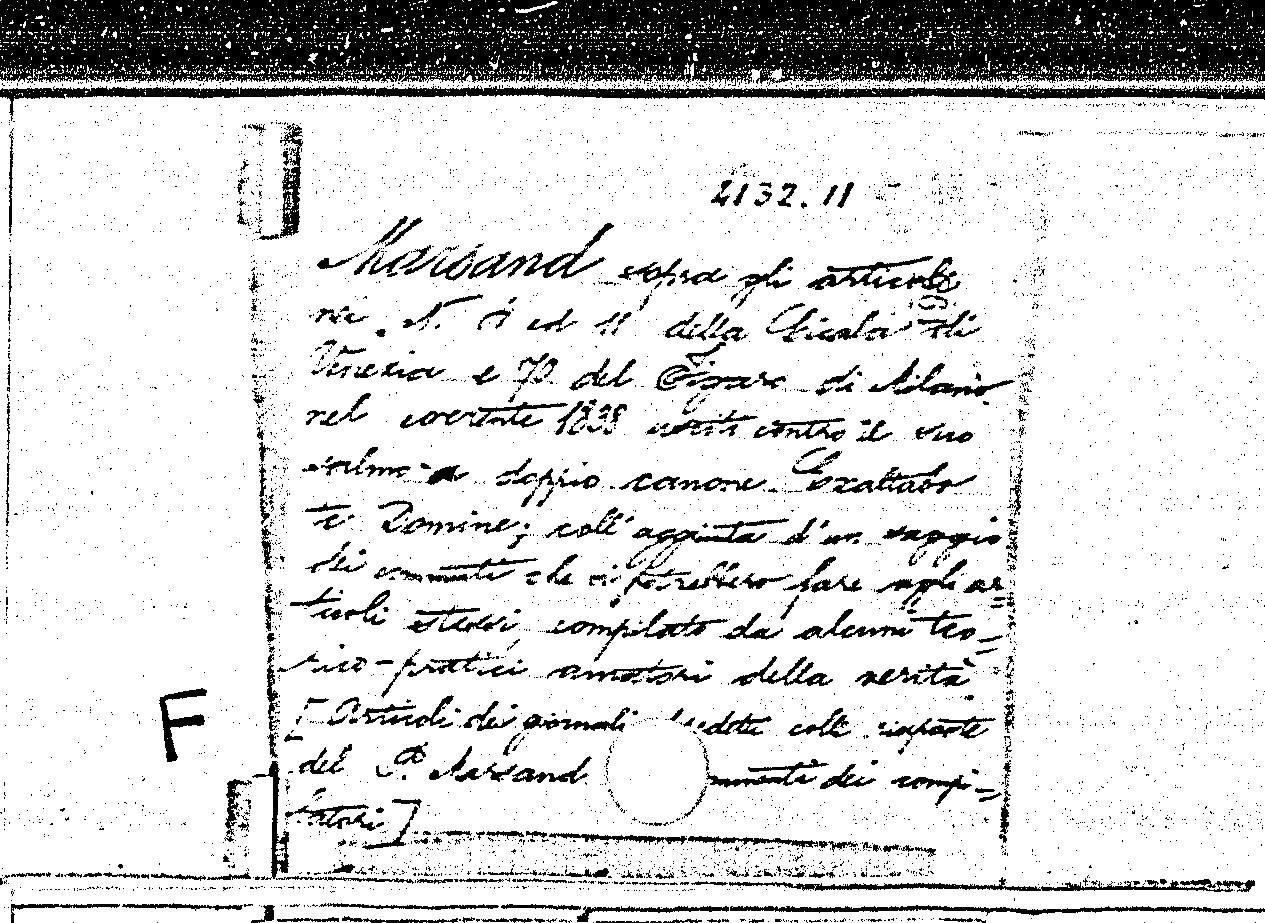 2132.11
Marsand sopra gli articoli
nei N. 6 ed 11 della Cicala di
Venezia e 70 del Figaro di Milano
nel corrente 1838 usciti contro il suo
salmo a doppio canone Exaltabo
te Domine; coll'aggiunta d'un saggio
dei commenti che si potrebbero fare agli ar=
ticoli stessi, compilato da alcuni teo=
rico-pratici amatori della verità
[Articoli dei giornali dette colle risposte
del P. Marsand mmenti dei compi=
latori]
F